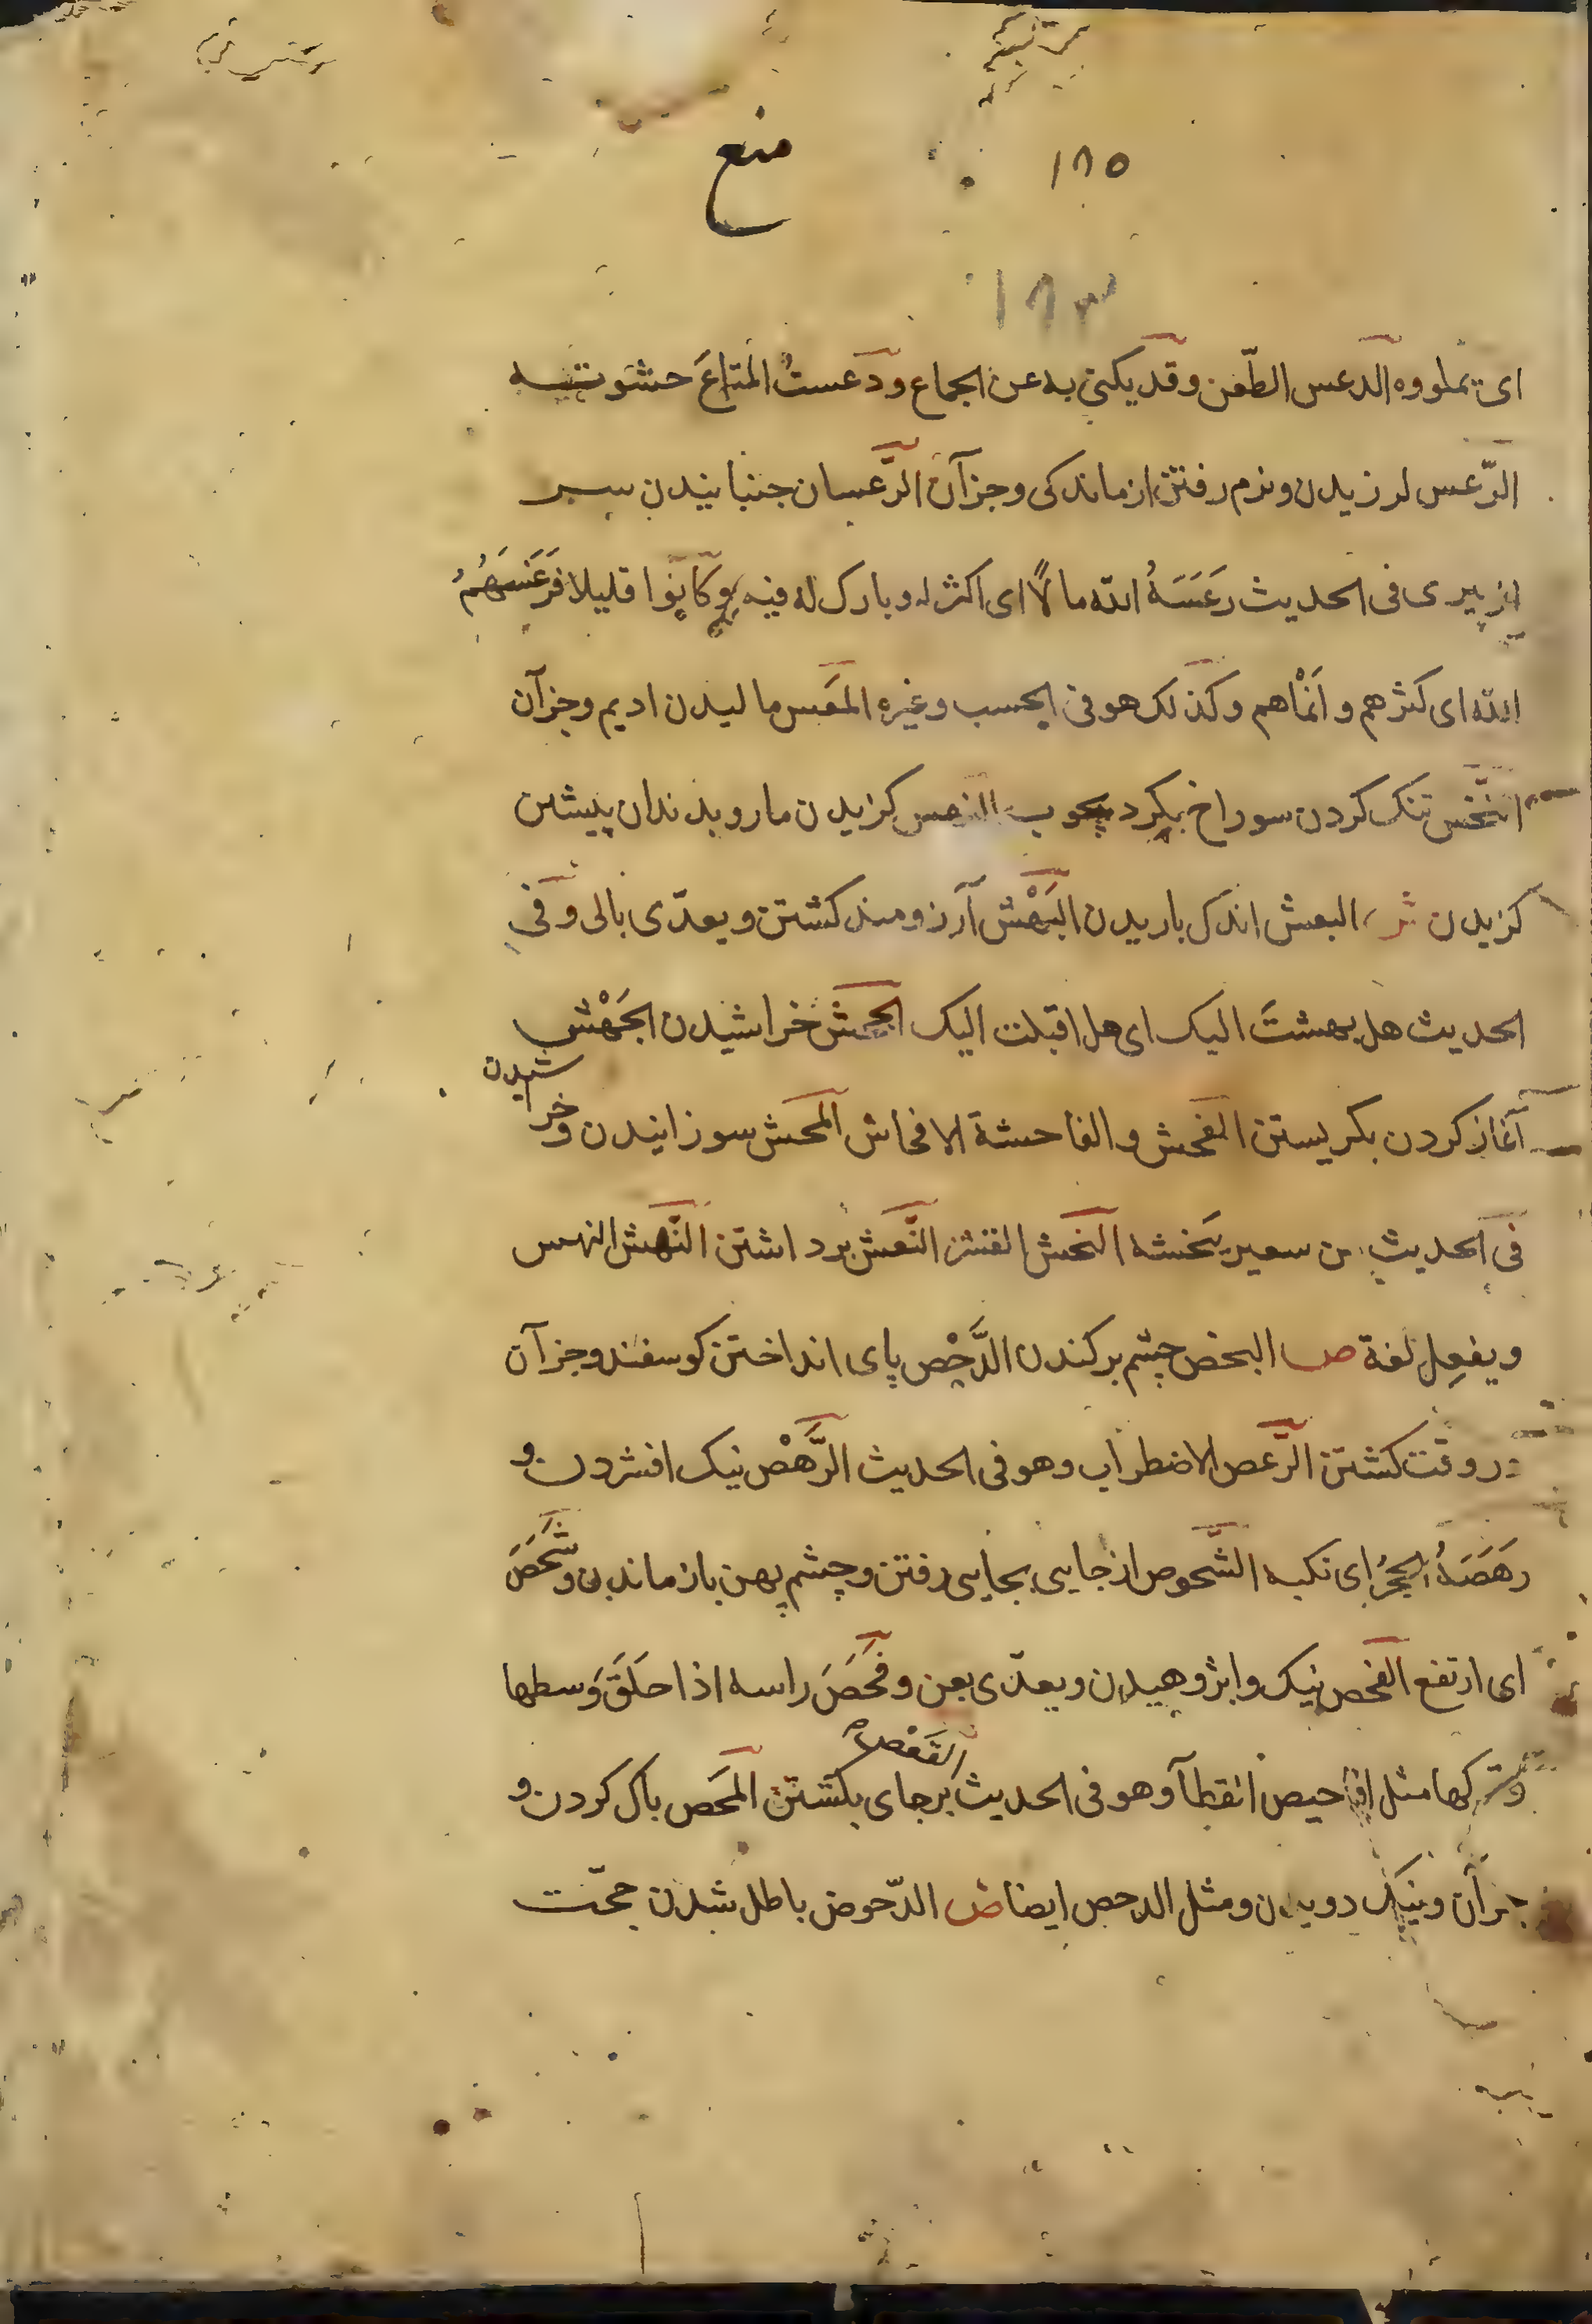 منع
١٨٥
١٨٣
ای یملووه الدعس الطّعن وقد یکنی به عن الجماع ودَعستُ المتاعَ حشوته
الرّعس لرزیدن ونرم رفتن از ماندکی وجزآن الرَّعسان جنبانیدن سر
از پیری فی الحدیث رَغَسَهُ الله مالًا ای اکثر له وبارک له فیه وکانوا قلیلا فَرَغَسَهُمُ
الله ای کثرهم و اَنْماهم وکذلک هو فی الحسب وغیره المَعَس مالیدن ادیم وجزآن
النَّخس تنک کردن سوراخ بکرد بچوب النهس کزیدن مار وبدندان پیشین
کزیدن ش البعش اندک باریدن البَهْش آرزومند کشتن ویعدّی بالی وفی
الحدیث هل بهشتَ الیک ای هل اقبلت الیک الجحش خراشیدن الجَهْش
آغاز کردن بکریستن الفحش والفاحشة الافحاش المحش سوزانیدن وخراشیدن
فی الحدیث من سعیر یَنخشه النخش النّعش برداشتن النَّهش النهس
ویفعِل لغة ص البخص چشم برکندن الدَّحْص پای انداختن کوسفند وجزآن
در وقت کشتن الرَّعص الاضطراب وهو فی الحدیث الرَّهْص نیک افشردن و
رَهَصَهُ الحجرُ ای نکبه الشَّخوص از جایی بجایی رفتن وچشم پهن باز ماندن وشَخَصَ
ای ارتفع الفحص نیک وابژوهیدن ویعدّی بعن وفَحَصَ راسه اذا حَلَقَ وَسطها
وترکها مثل افاحیص القطا وهو فی الحدیث القَعْص برجای بکشتن المَحص پاک کردن و
جزآن ونیک دویدن ومثل الدحص ایضا ض الدّحوض باطل شدن حجّت